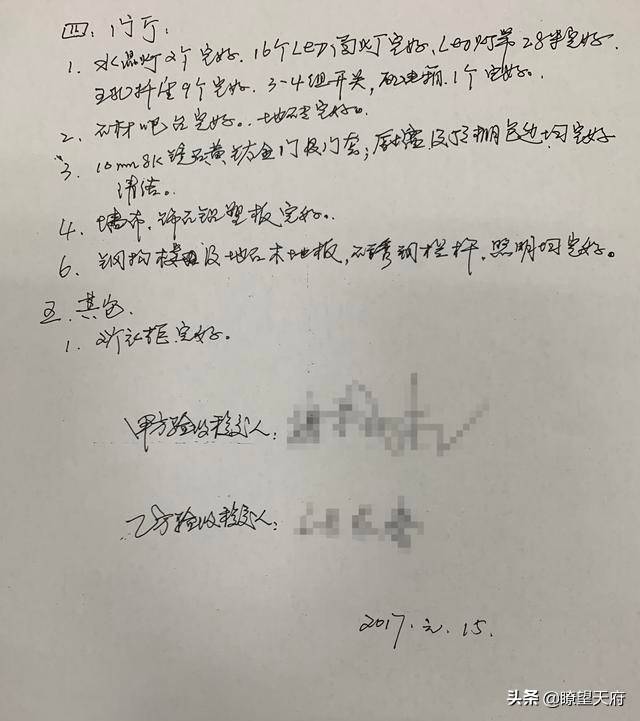 四、门厅:
1. 水晶灯2个完好. 16个LeD筒灯完好、LeD灯带28米完好.
五孔插座9个完好. 3-4组开关, 配电箱.1个完好。
2. 石材吧台完好。地砖完好。
3. 10mm 8K 镜面黄钛金门及门套; 及顶棚包边均完好
清洁。
4. 墙布.饰面铝塑板完好。
6. 钢构楼梯及地面木地板,不锈钢栏杆.照明均完好。
五.其它.
1. 2个完好。
甲方验收移交人:
乙方验收移交人:
2017.元.15.
头条 @瞭望天府